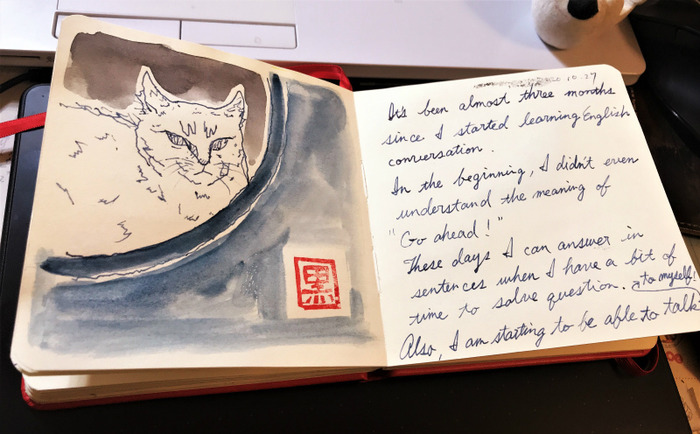 黒
10.27
It's been almost three months
since I started learning English
conversation.
In the beginning, I didn't even
understand the meaning of
"Go ahead!"
These days I can answer in
sentences when I have a bit of
time to solve question. to myself!
Also, I am starting to be able to talk